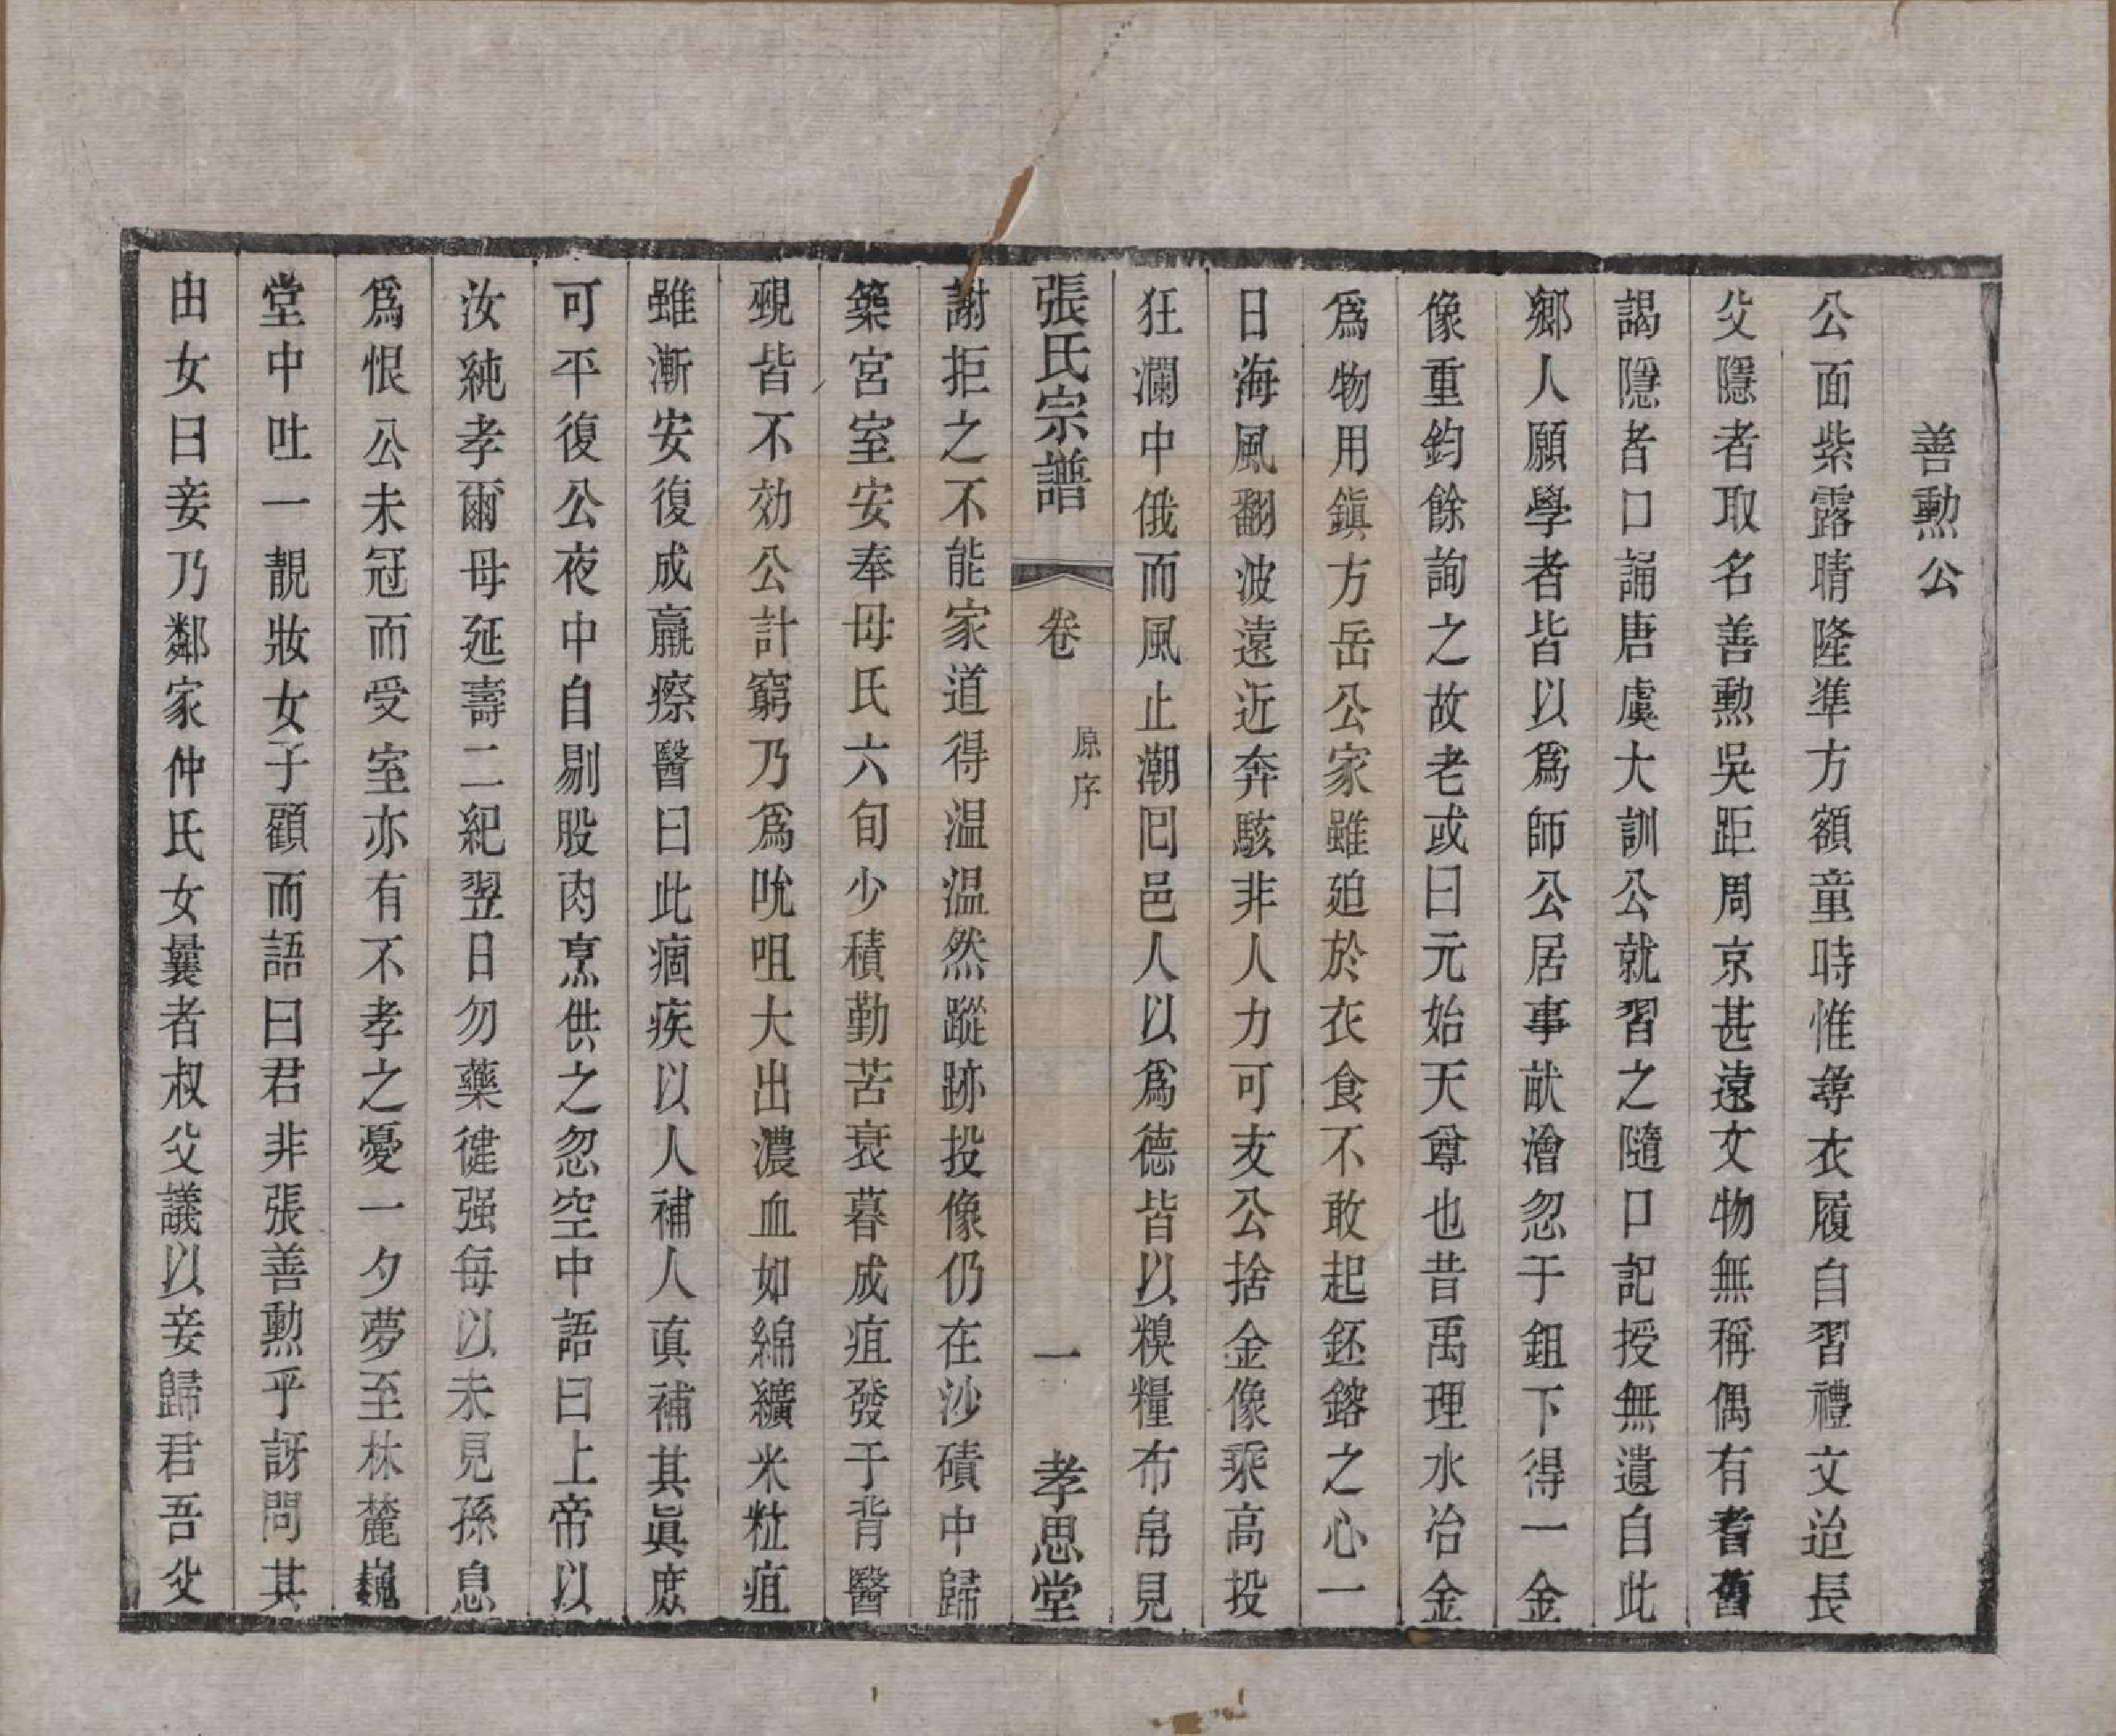 善勲公
公面紫露晴隆準方額童時惟㝷衣履自習禮文迨長
父隱者取名善勲吳距周京甚遠文物無稱偶有耆舊
謁隱者口誦唐虞大訓公就習之隨口記授無遺自此
鄉人願學者皆以爲師公居事畎澮忽于鉏下得一金
像重鈞餘詢之故老或曰元始天尊也昔禹理水冶金
爲物用鎭方岳公家雖廹於衣食不敢起鉟鎔之心一
日海風翻波遠近奔駭非人力可支公捨金像乘高投
狂瀾中俄而風止潮囘邑人以爲德皆以糗糧布帛見
張氏宗譜 卷 原序 一 孝思堂
謝拒之不能家道得温温然蹤跡投像仍在沙磧中歸
築宮室安奉母氏六旬少積勤苦衰暮成疽發于背醫
覡皆不効公計窮乃爲吮咀大出濃血如綿纊米粃疽
雖漸安復成羸瘵醫曰此痼疾以人補人眞補其眞庶
可平復公夜中自剔股肉烹供之忽空中語曰上帝以
汝純孝爾母延壽二紀翌日勿藥健强每以未見孫息
爲恨公未冠而受室亦有不孝之憂一夕夢至林麓巍
堂中吐一靚妝女子顧而語曰君非張善勲乎訝問其
由女曰妾乃鄰家仲氏女曩者叔父議以妾歸君吾父